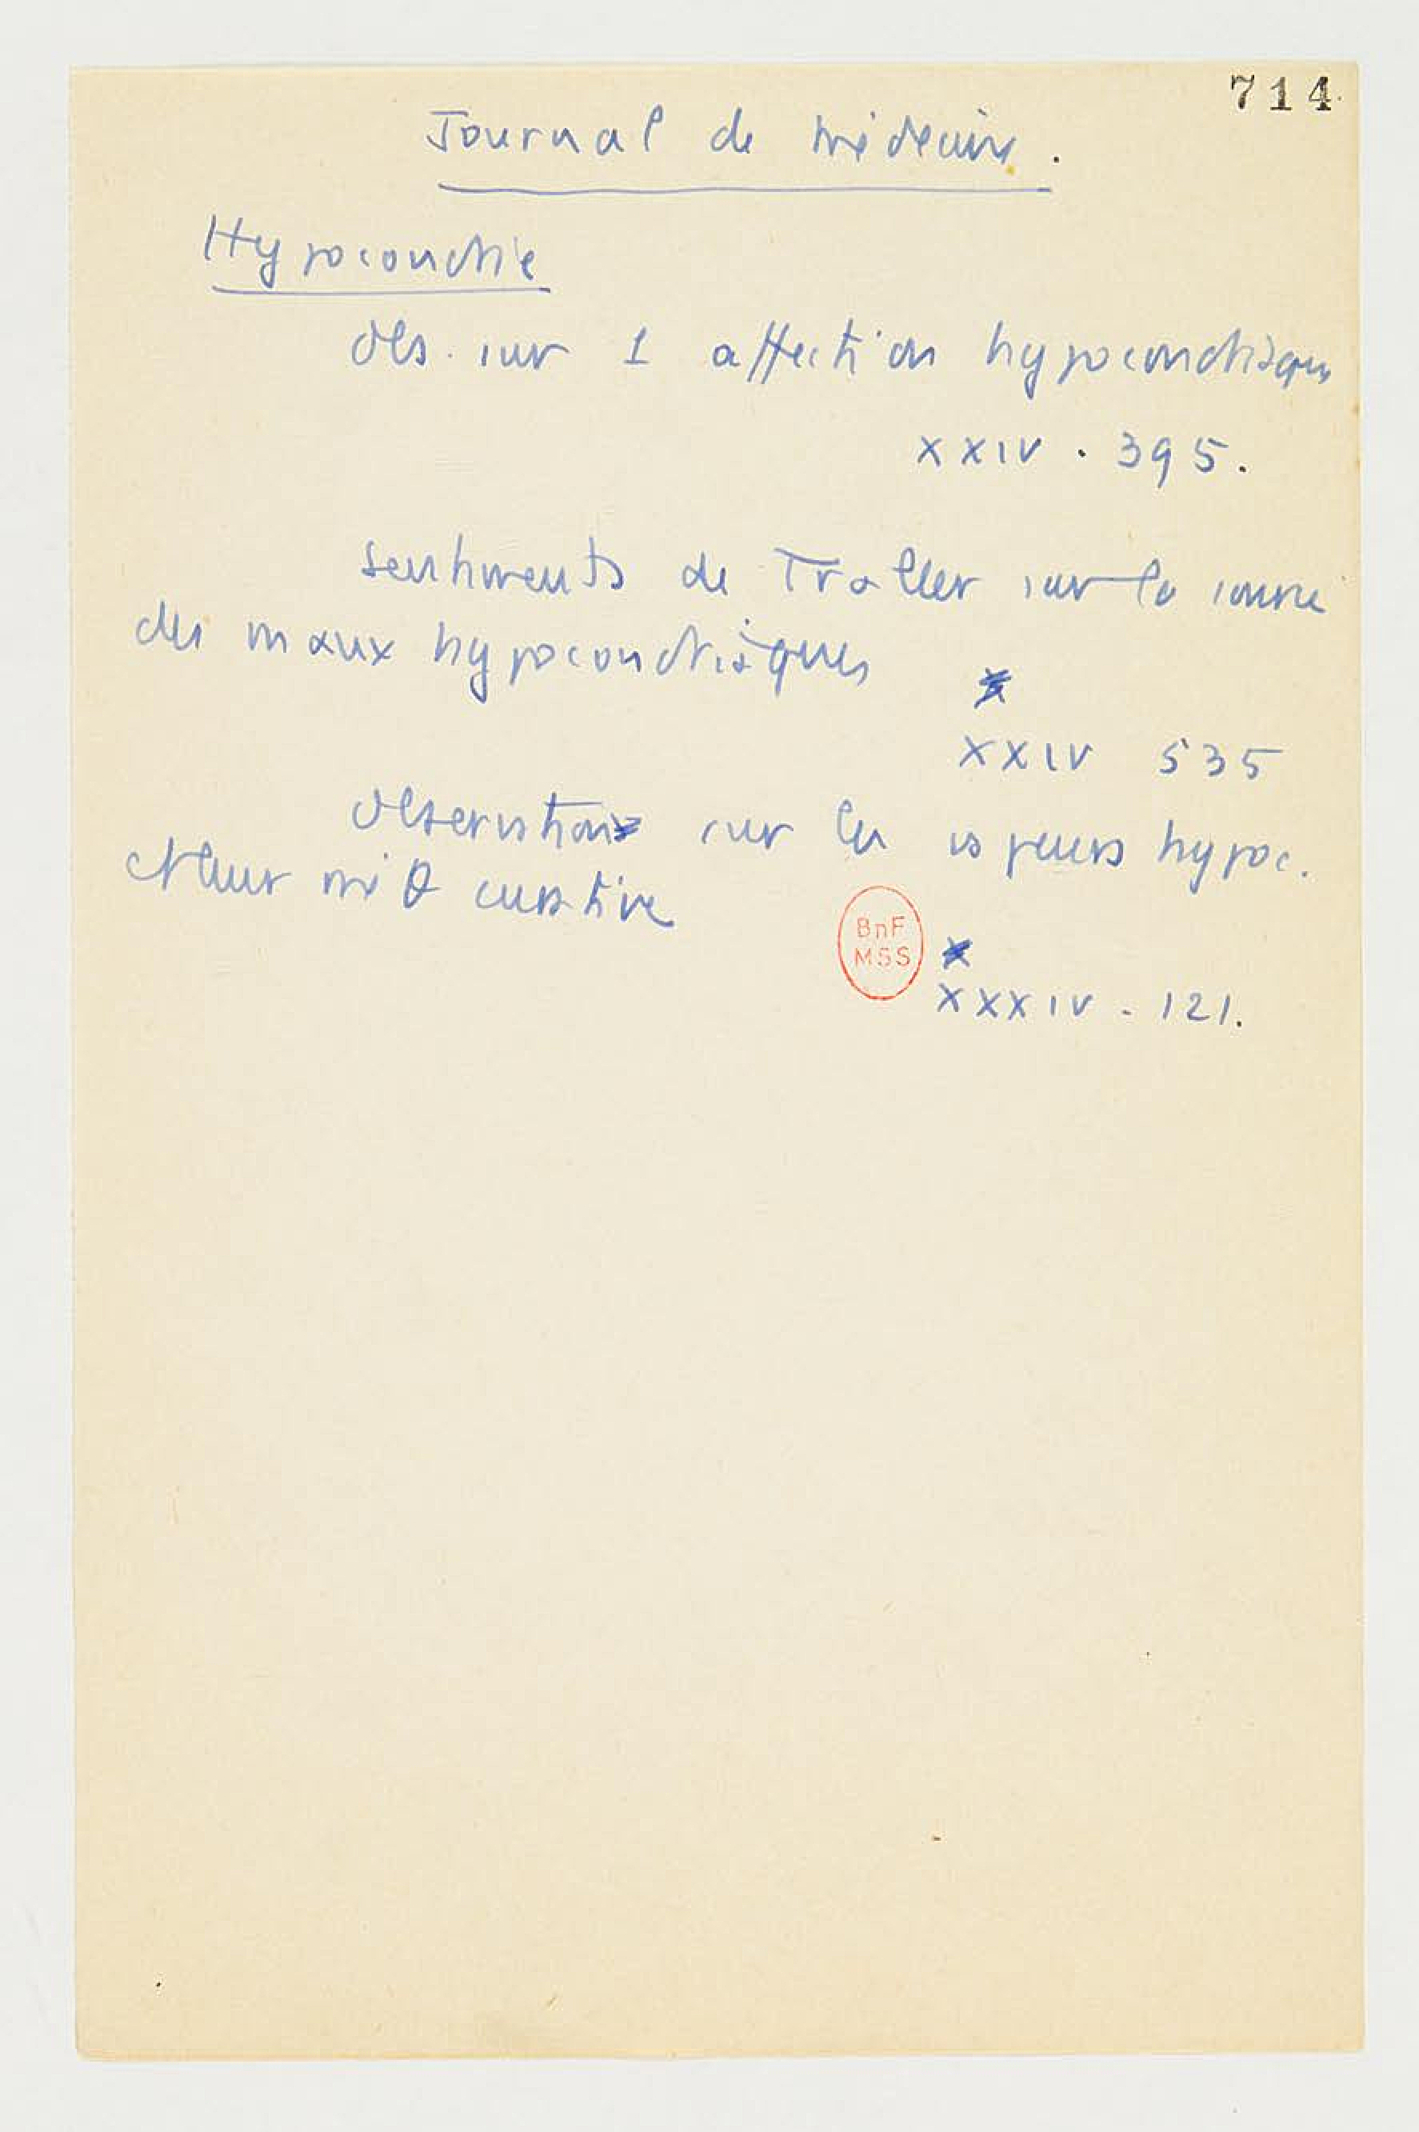 714
Journal de médecine.
Hypocondrie
Obs. sur 1 affection hypocondriaque
XXIV. 395.
Sentiments de Traller sur la source
des maux hypocondriaques
XXIV 535
Observation sur les vapeurs hypoc.
et leur mθ curative
BnF
MSS
XXXIV - 121.